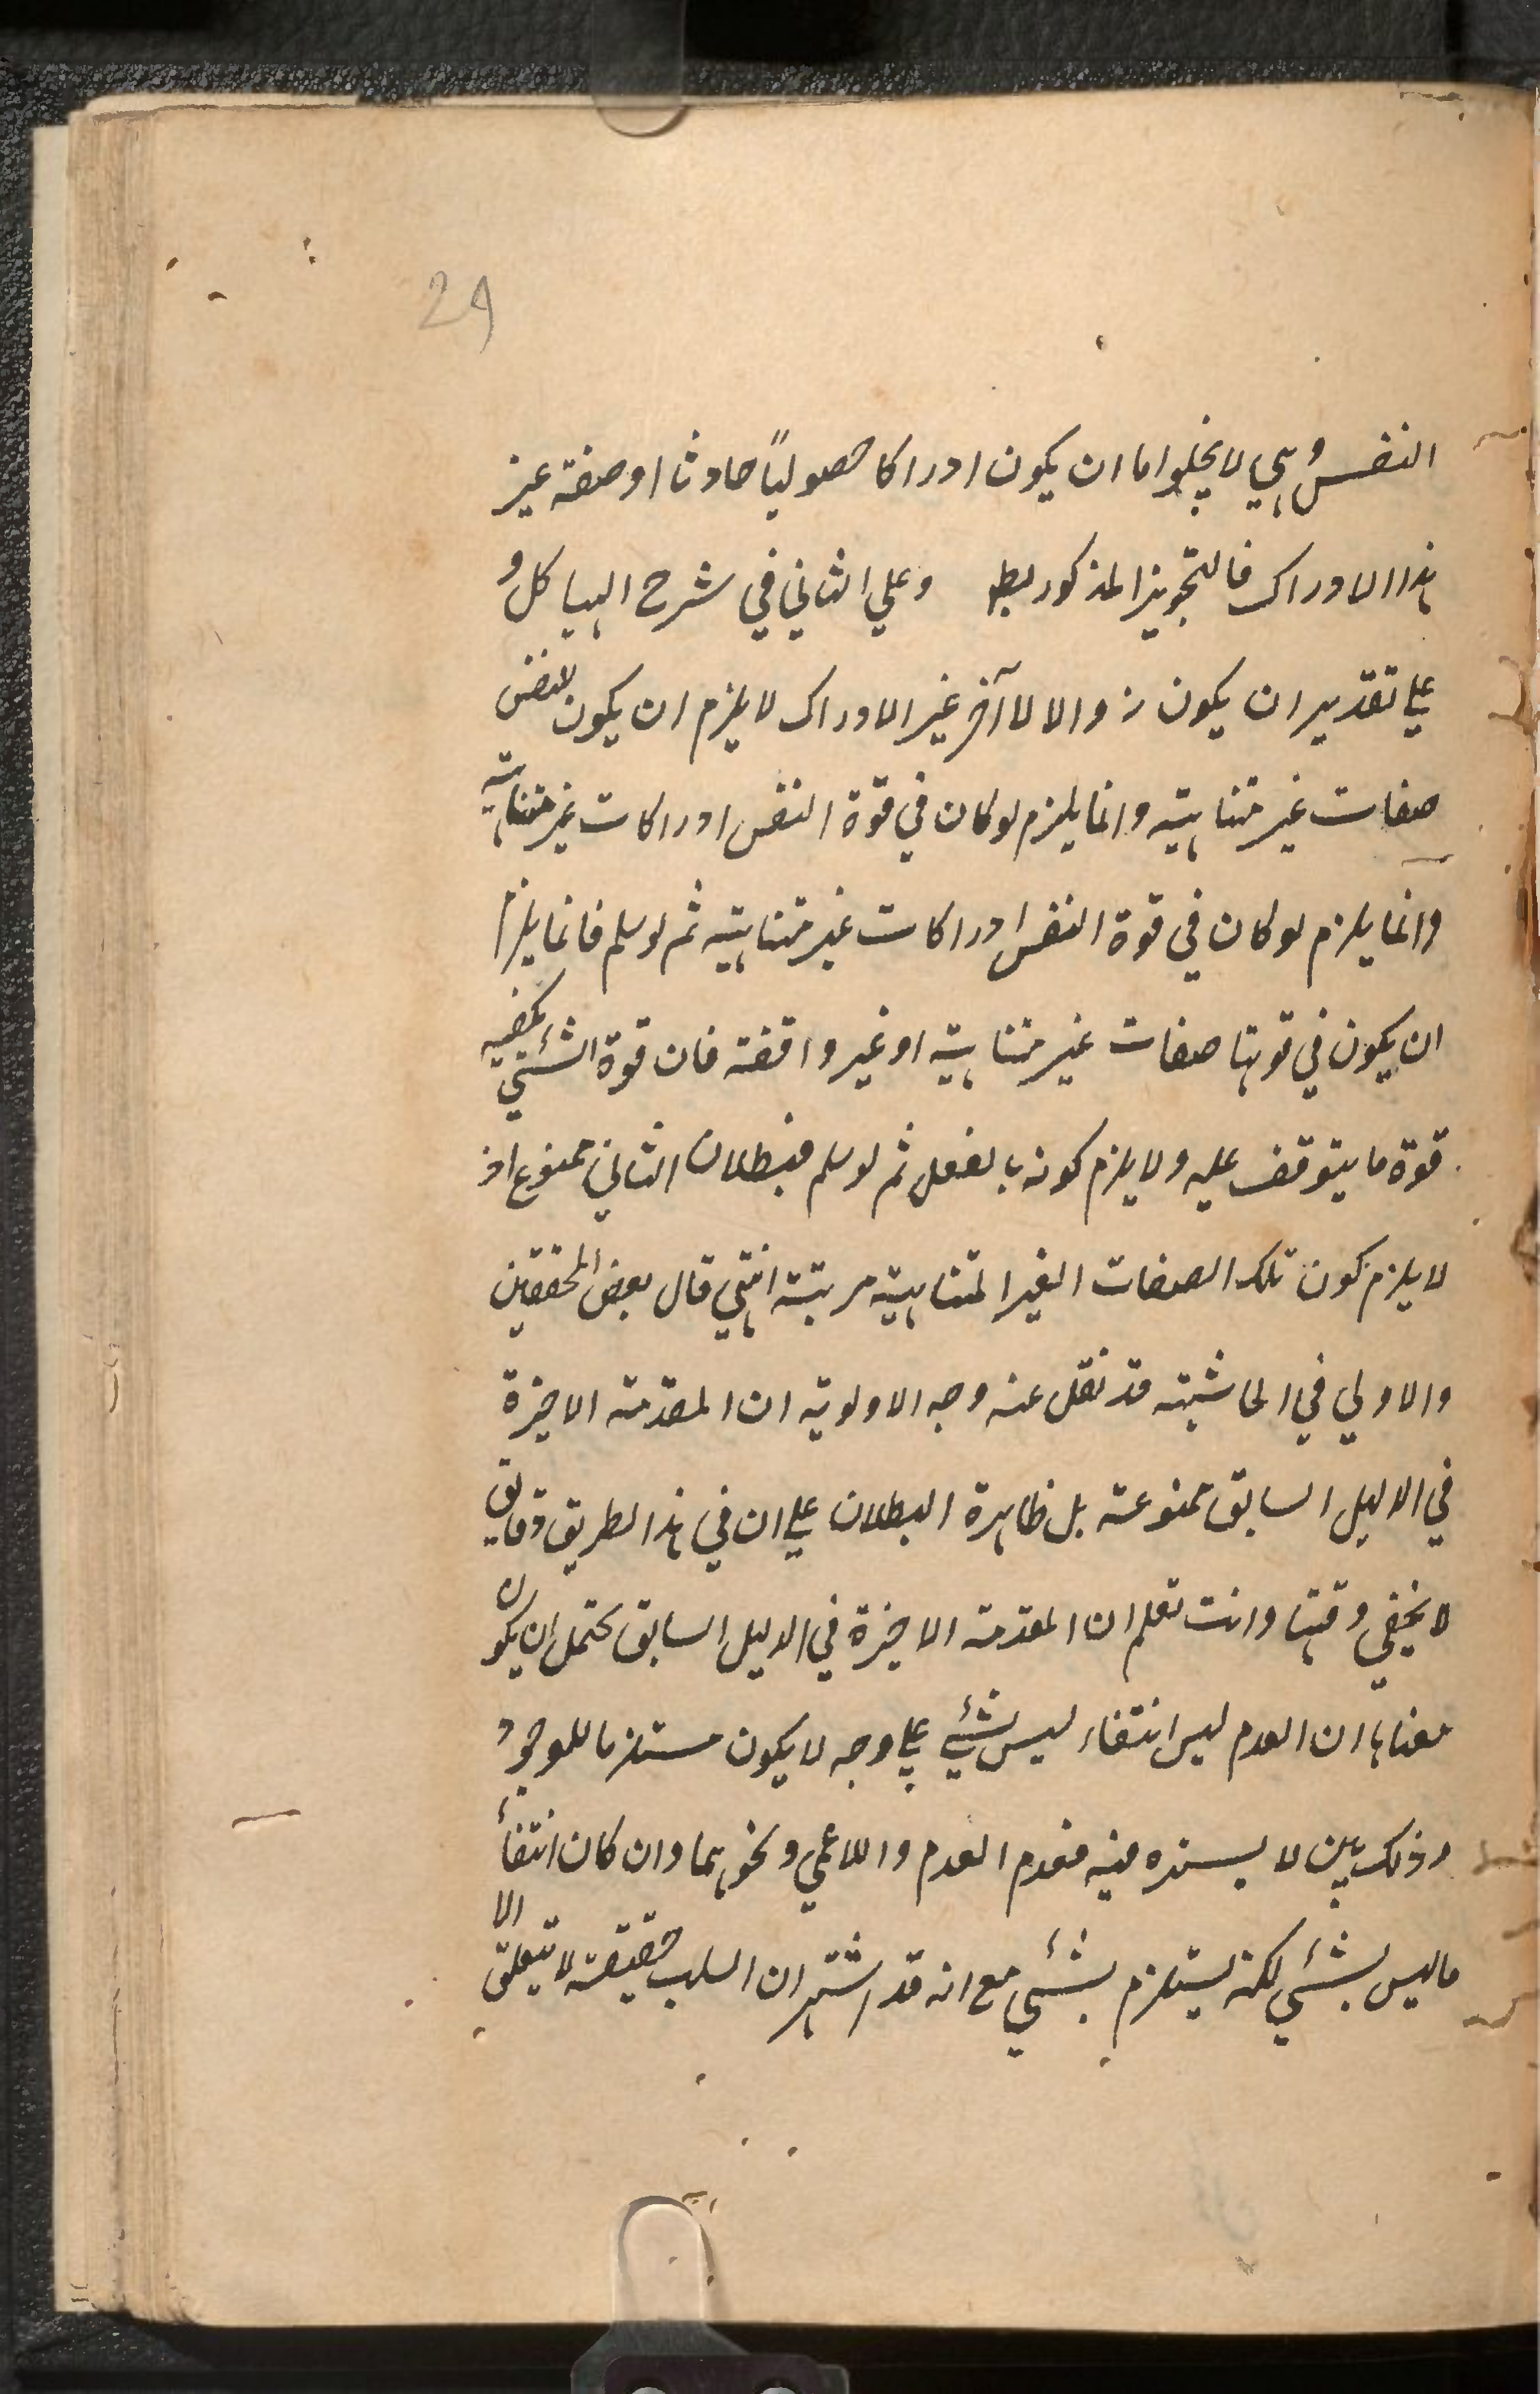 29
النفس وهي لا يخلو اما ان يكون ادراكا حصولياً حادثا او صفة غير
هذا الادراك فالتجويز المذكور بط وعلي الثاني في شرح الهياكل و
علي تقدير ان يكون زوالا لآخر غير الادراك لا يلزم ان يكون للنفس
صفات غير متناهية وانما يلزم لو كان في قوة النفس ادراكات غير متناهية
وانما يلزم لو كان في قوة النفس ادراكات غير متناهية ثم لو سلم فانما يلزم
ان يكون في قوتها صفات غير متناهية او غير واقفة فان قوة الشئي
قوة ما يتوقف عليه ولا يلزم كونه بالفعل ثم لو سلم فبطلان الثاني ممنوع اذ
لا يلزم كون تلك الصفات الغير المتناهية مرتبة انتهي قال بعض المحققين
والاولي في الحاشية قد نقل عنه وجه الاولوية ان المقدمة الاخيرة
في الدليل السابق ممنوعة بل ظاهرة البطلان علي ان في هذا الطريق دقايق
لا يخفي دقتها وانت تعلم ان المقدمة الاخيرة في الدليل السابق يحتمل ان يكون
معناها ان العدم ليس انتفاء ليس بشئي علي وجه لا يكون مستلزما للوجود
وذلك بين لا يسترہ فيه فعدم العدم واللاعمي ونحوهما وان كان انتفاء
ما ليس بشئي لكنه يستلزم بشئي مع انه قد اشتهر ان السلب حقيقة لا يتعلق الا